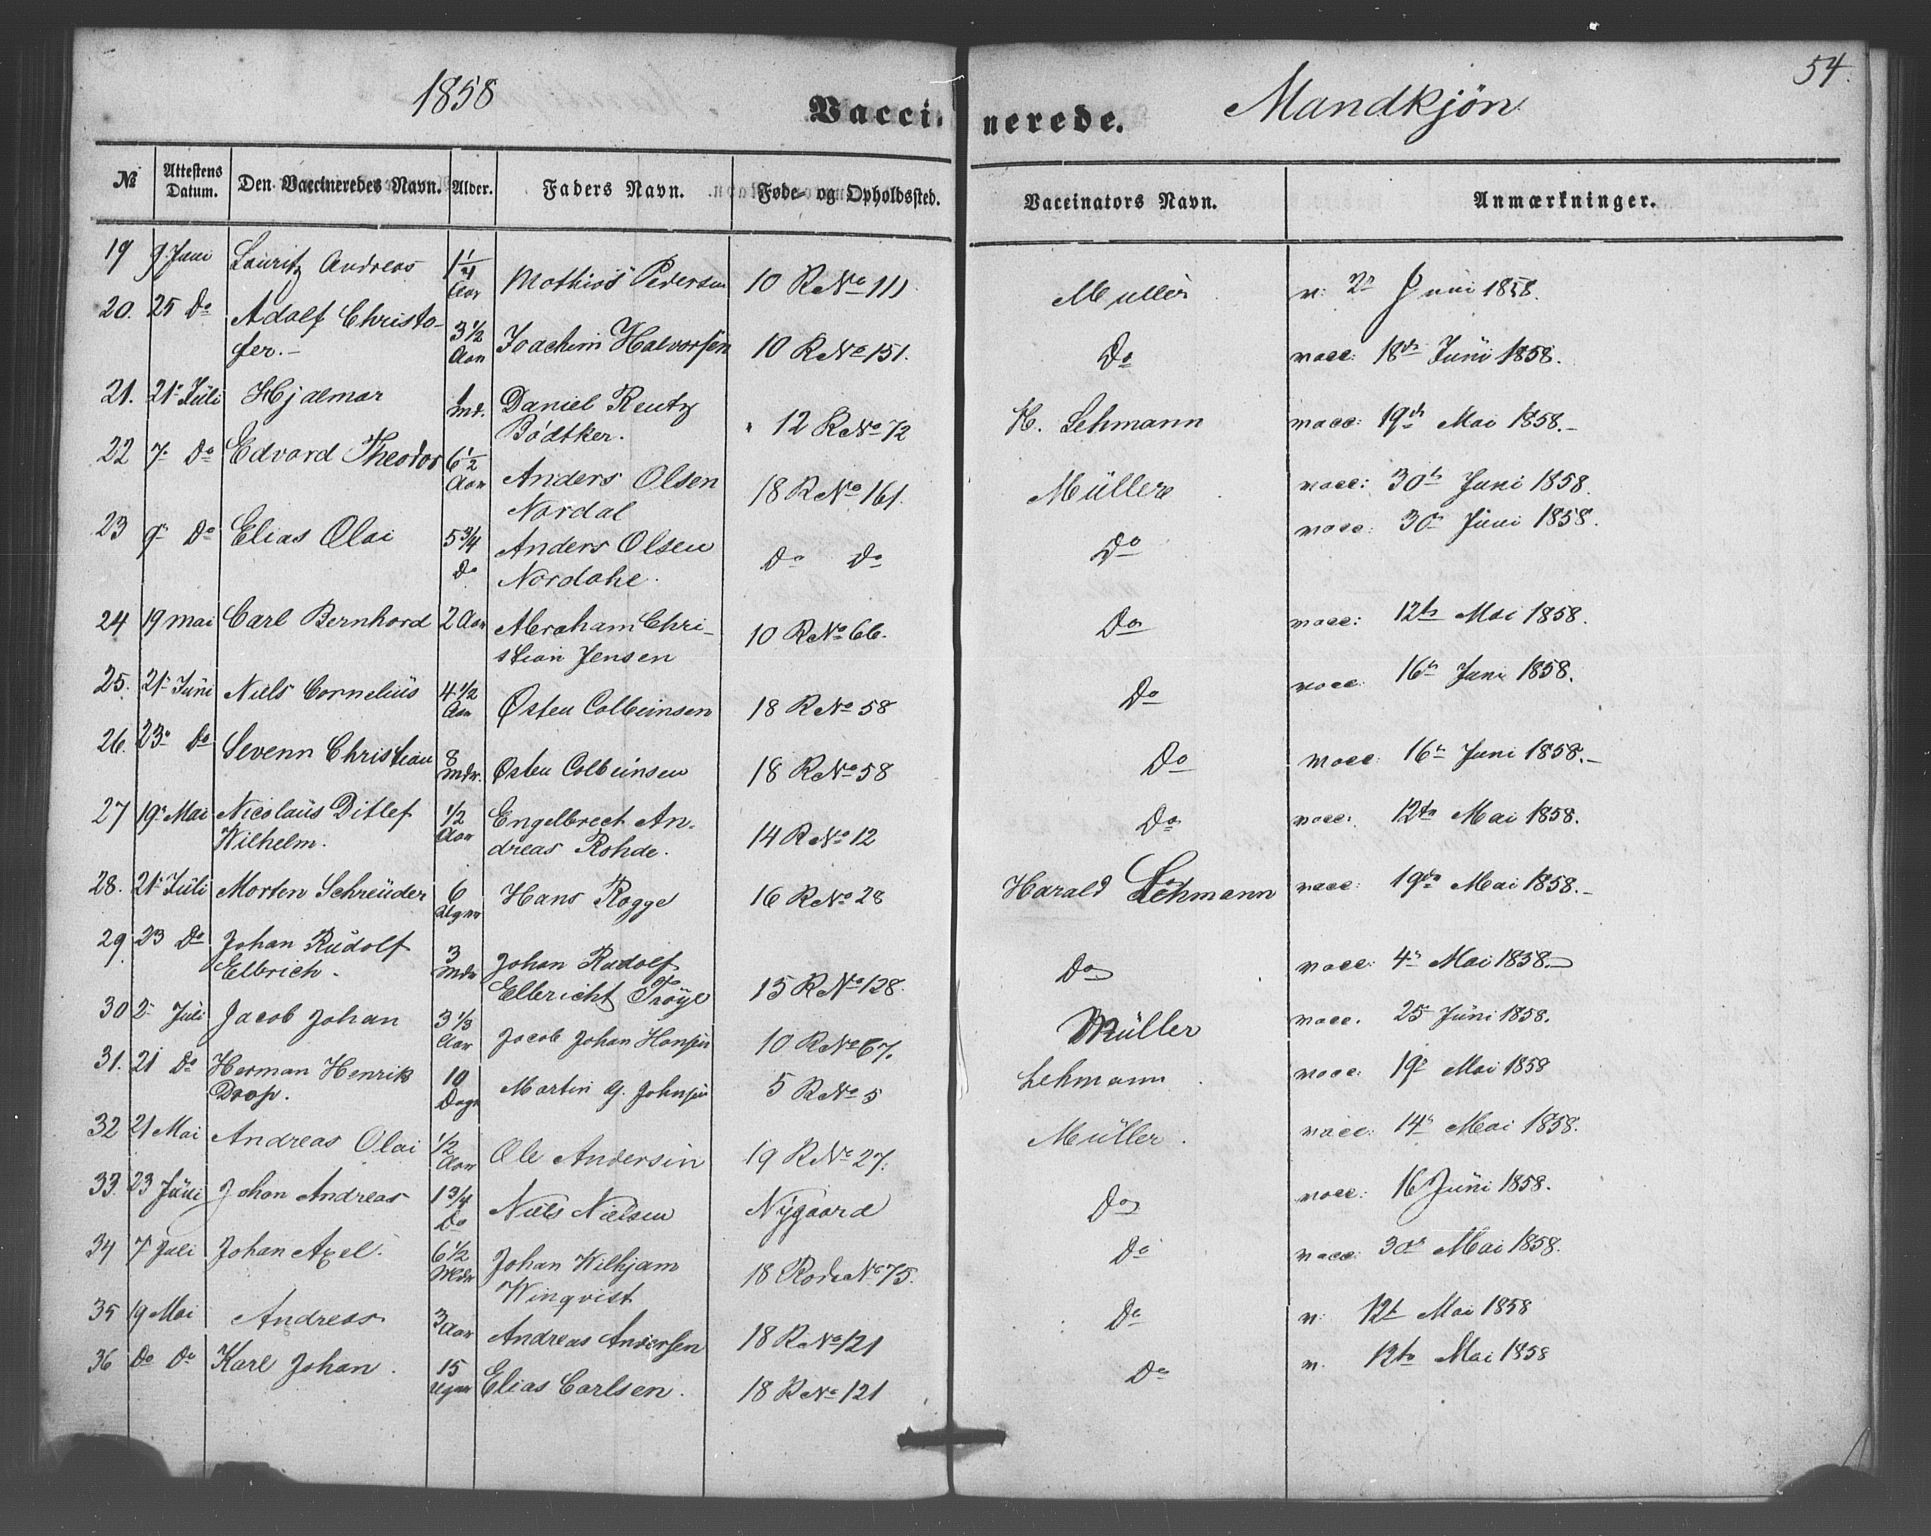 1858
Vaccinerede.
Mandkjön
54.
№ Attestens Datum. Den Vaccineredes Navn. Alder. Faders Navn. Føde- og Opholdssted. Vaccinators Navn. Anmærkninger.
19 9 Juni Lauritz Andreas 1 1/4 Aar Mathias Pedersen 10 R No 111. Müller v: 2n Juni 1858.
20. 25 Do Adolf Christo-
fer.- 3 1/2 Aar Joachim Halvorsen 10 R No 151. Do vacc: 18de Juni 1858.
21. 21 Juli Hjalmar 1 Md. Daniel Reutz
Bödtker. 12 R No 72 H. Lehmann vacc: 19de Mai 1858.-
22 7 Do Edvard Theodor 6 1/2 Aar Anders Olsen
Nordal 18 R No 161. Müller vacc: 30te Juni 1858.
23 9 Do Elias Olai 5 3/4 Do Anders Olsen
Nordahl. Do Do Do vacc: 30te Juni 1858.
24 19 Mai Carl Bernhard 2 Aar Abraham Chri-
stian Jensen 10 R No 66. Do vacc: 12te Mai 1858.
25. 21 Juni Niels Cornelius 4 1/2 Aar Østen Colbeinsen 18 R No 58 Do vacc: 16n Juni 1858.
26. 23 Do Sevenn Christian 8 Mdr. Østen Colbeinsen 18 R No 58 Do vacc: 16n Juni 1858.-
27 19 Mai Nicolaüs Ditlef
Wilhelm. 1/2 Aar Engelbrect An-
dreas Rohde. 14 R No 12 Do vacc: 12te Mai 1858.
28. 21 Juli Morten Schreüder 6 Ugur Hans Rogge 16 R No 28 Harald Lehmann vacc: 19de Mai 1858.-
29. 23 Do Johan Rudolf
Elbrich. 3 Mdr Johan Rudolf
Elbricht Tröye 15 R No 128. Do vacc: 4n Mai 1858.-
30 2 Juli Jacob Johan 3 1/3 Aar Jacob Johan Hansen 10 R No 67. Müller vacc. 25 Juni 1858.
31. 21 Do Herman Henrik
Droop. 10 Dage Martin G. Johnsen 5 R No 5 Lehmann vacc: 19n Mai 1858
32 21 Mai Andreas Olai 1/2 Aar Ole Andersen 19 R No 27. Müller. vacc: 14n Mai 1858.
33. 23 Juni Johan Andreas 1 3/4 Do Niels Nielsen Nygaard Do vacc: 16 Juni 1858.
34 7 Juli Johan Axel. 6 1/2 Johan Wilhjam
Winqvist 18 Rode No 75. Do vacc: 30n Mai 1858.
35 19 Mai Andreas 3 Aar Andreas Andersen 18 R No 121 Do v: 12t Mai 1858
36 Do Do Karl Johan. 15 Ugur Elias Carlsen. 18 R No 121 Do v. 12te Mai 1858